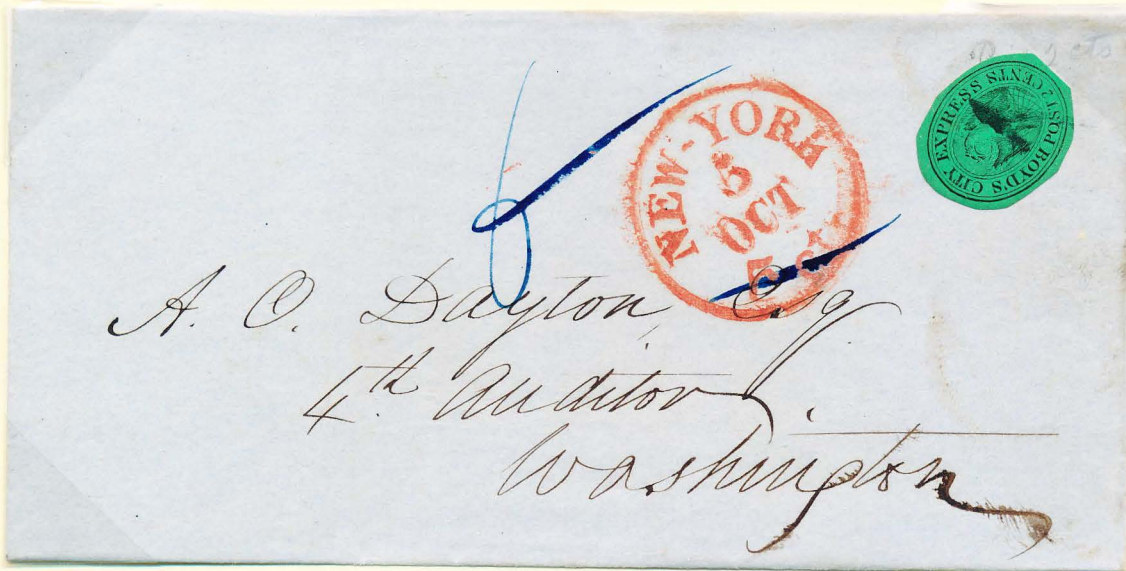 BOYD'S CITY EXPRESS POST 2 CENTS
NEW-YORK
5
OCT
5 cts
A. O. Dayton, Esq
4th Auditor
Washington